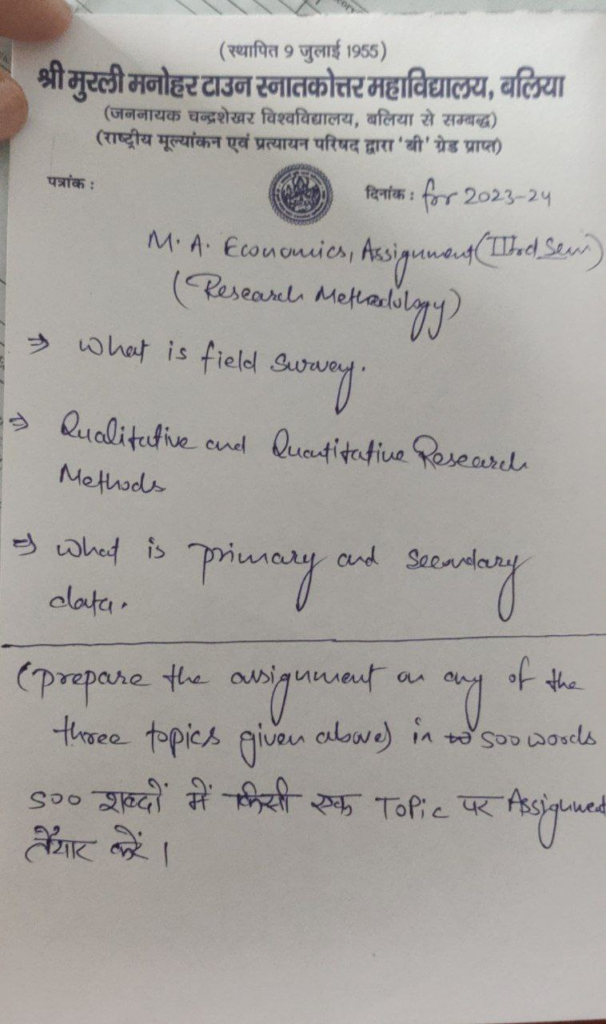 (स्थापित 9 जुलाई 1955)
श्री मुरली मनोहर टाउन स्नातकोत्तर महाविद्यालय, बलिया
(जननायक चन्द्रशेखर विश्वविद्यालय, बलिया से सम्बद्ध)
(राष्ट्रीय मूल्यांकन एवं प्रत्यायन परिषद द्वारा 'बी' ग्रेड प्राप्त)
पत्रांक :
दिनांक : for 2023-24
M. A. Economics, Assignment (IIIrd Sem)
(Research Methodology)
⇒ What is field survey.
⇒ Qualitative and Quantitative Research
Methods
⇒ What is primary and secondary
data.
(prepare the assignment on any of the
three topics given above) in 500 words
500 शब्दों में किसी एक Topic पर Assignment
तैयार करें।